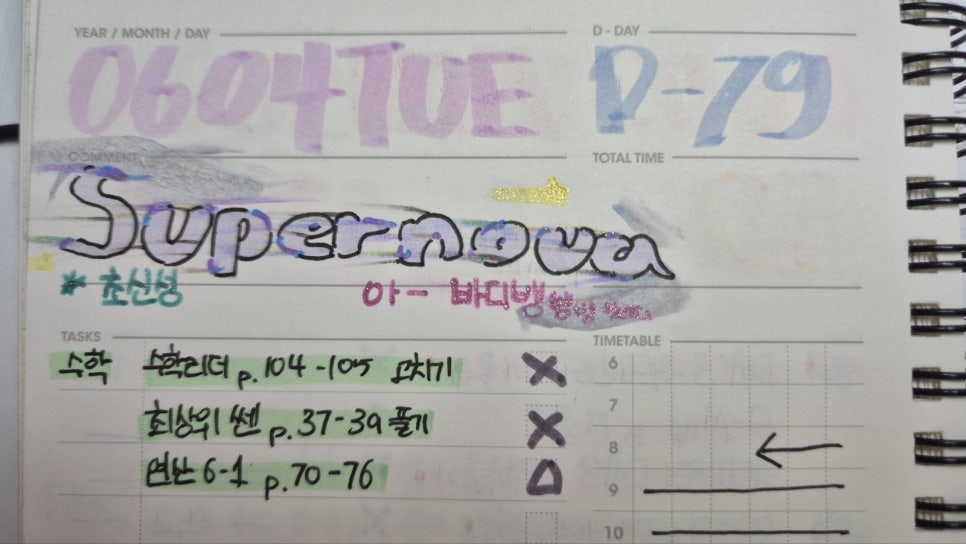 YEAR / MONTH / DAY
D - DAY
0604 TUE
D-79
COMMENT
TOTAL TIME
Supernova
* 초신성
아 - 바디뱅
TASKS
TIMETABLE
수학 수학리더 p.104-105 고치기 X
최상위 쎈 p.37-39 풀기 X
연산 6-1 p.70-76 △
6
7
8
9
10